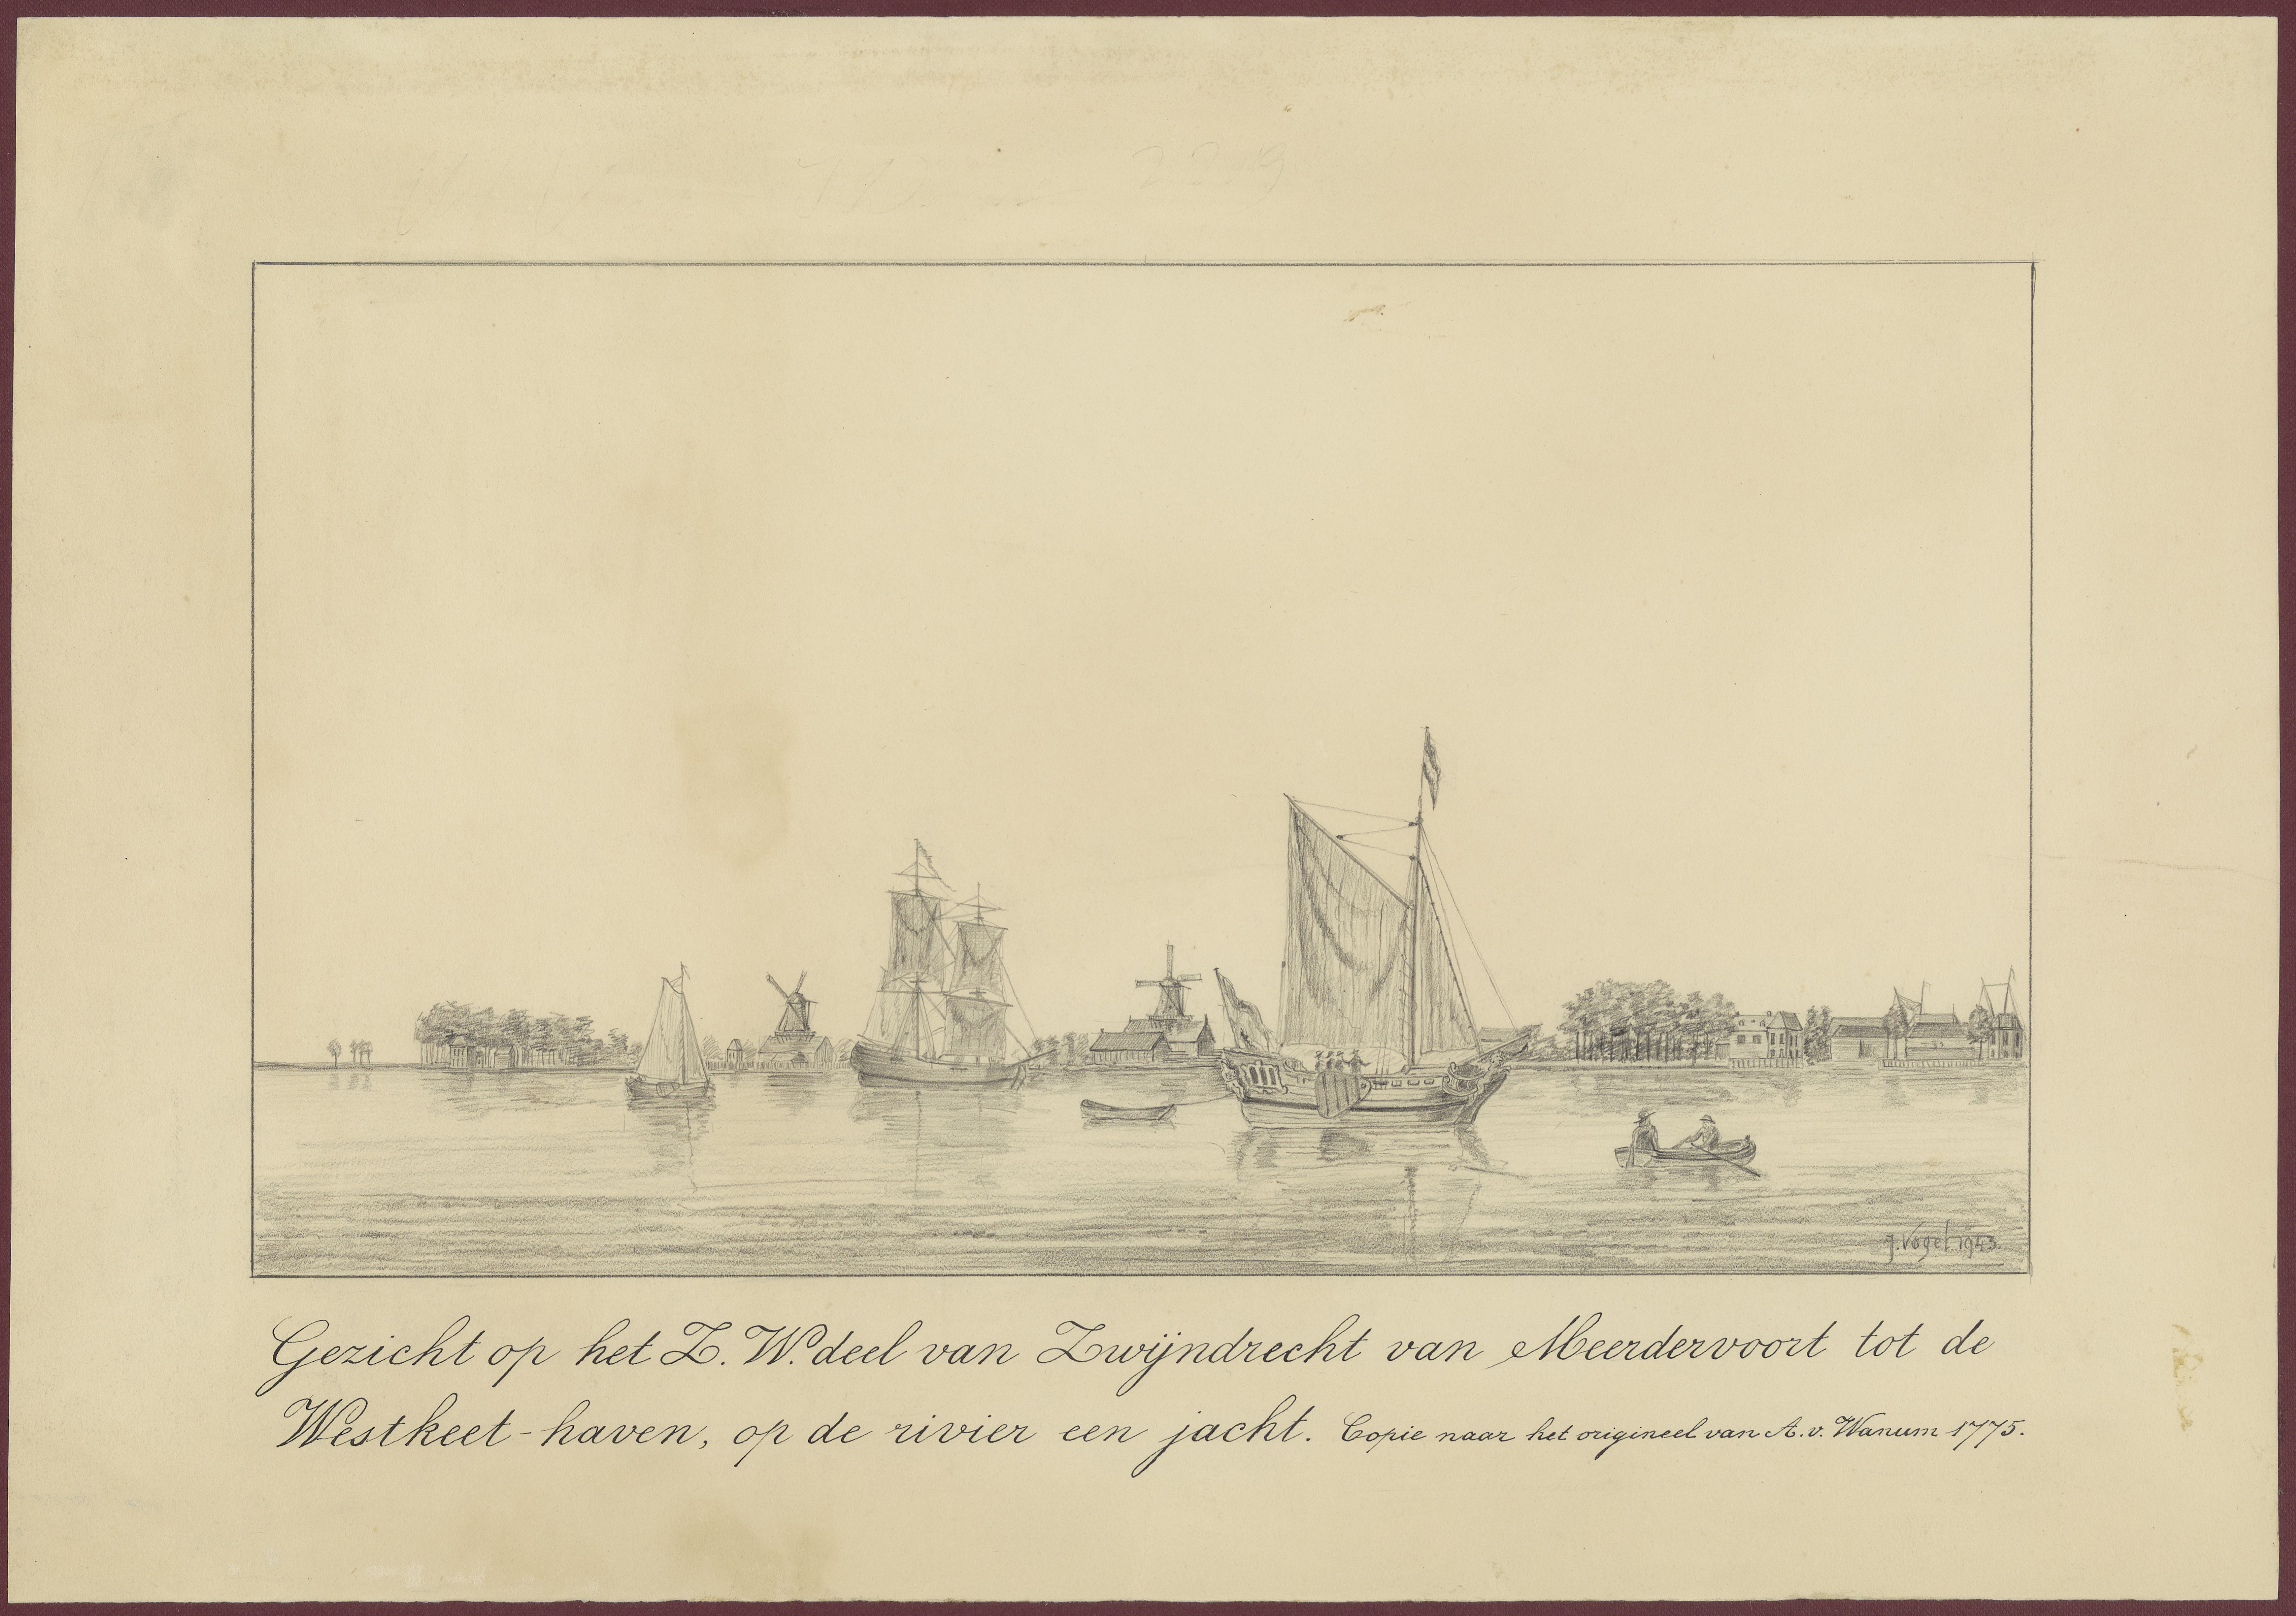 J. Vogel 1943.
Gezicht op het Z. W. deel van Zwijndrecht van Meerdervoort tot de
Westkeet-haven, op de rivier een jacht. Copie naar het origineel van A. v. Wanum 1775.